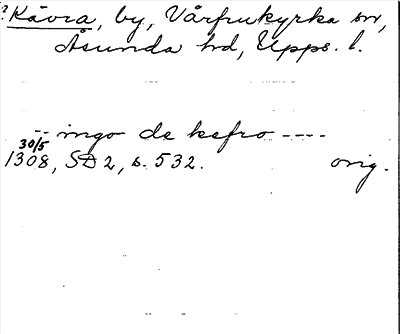 ? Kävra, by, Vårfrukyrka sn,
Åsunda hd, Upps. l.
-- ingo de kefro ----
30/5
1308, SD 2, s. 532. orig.